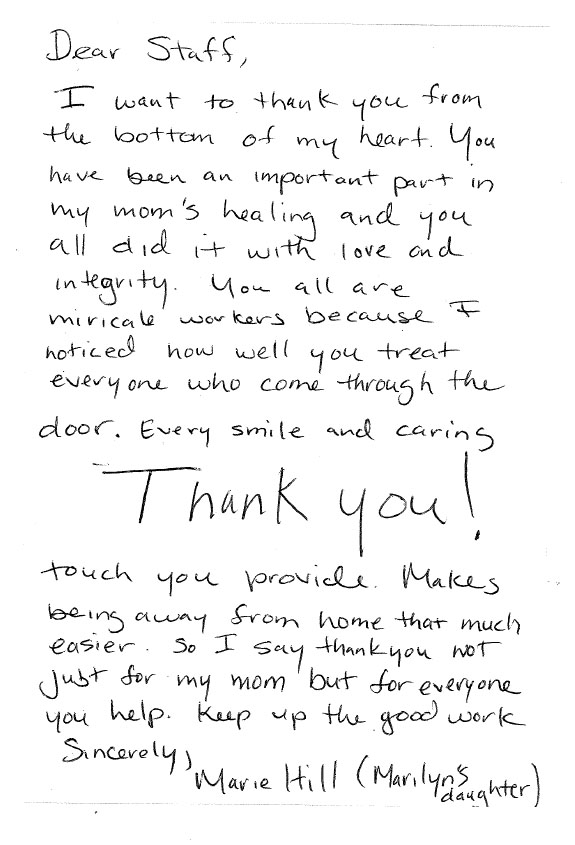 Dear Staff,
I want to thank you from
the bottom of my heart. You
have been an important part in
my mom's healing and you
all did it with love and
integrity. You all are
miricale workers because I
noticed how well you treat
everyone who come through the
door. Every smile and caring
Thank you!
touch you provide. Makes
being away from home that much
easier. So I say thankyou not
just for my mom but for everyone
you help. Keep up the good work
Sincerely,
Marie Hill (Marilyn's
daughter)